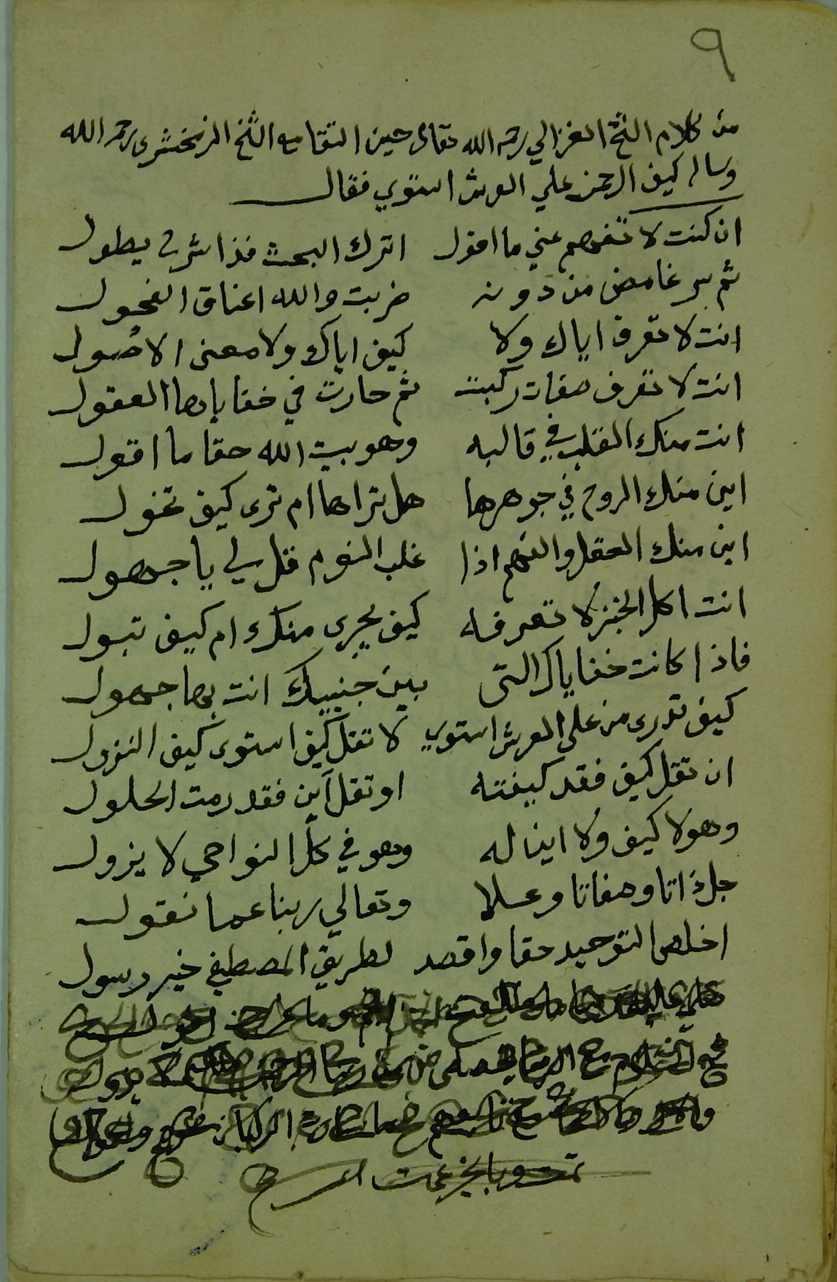 ٩
من كلام الشيخ الغزالي رحمه الله تعالى حين التقا به الشيخ الزمخشري رحمه الله
وساله كيف الرحمن علي العرش استوي فقال
ان كنت لا تفهم عني ما اقول اترك البحث فذا شرح يطول
ثم سر غامض من دونه ضربت والله اعناق الفحول
انت لا تعرف اياك ولا كيف اياك ولا معنى الاصول
انت لا تعرف صفات ركبت ثم حارت في خفاياها العقول
انت منك القلب في قالبه وهو بيت الله حقا ما اقول
اين منك الروح في جوهرها هل تراها ام ترى كيف تخول
اين منك العقل والفهم اذا غلب النوم قل لي يا جهول
انت اكل الخبز لا تعرفه كيف يجري منك ام كيف تبول
فاذا كانت خفاياك التي بين جنبيك انت بها جهول
كيف تدري من علي العرش استوي لا تقل كيف استوي كيف النزول
ان تقل كيف فقد كيفته او تقل أين فقد رمت الحلول
وهو لا كيف ولا اينا له وهو في كل النواحي لا يزول
جل ذاتا وصفاتا وعلا وتعالي ربنا عما نقول
اخلص التوحيد حقا واقصد لطريق المصطفي خير رسول